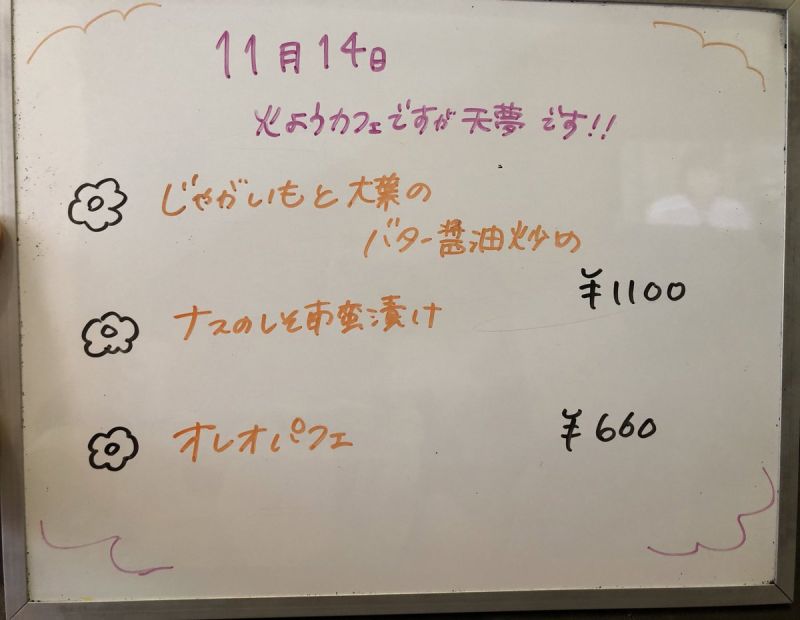 11月14日
火ようカフェですが天夢です!!
じゃがいもと大葉の
バター醤油炒め
¥1100
ナスのしそ南蛮漬け
オレオパフェ ¥660